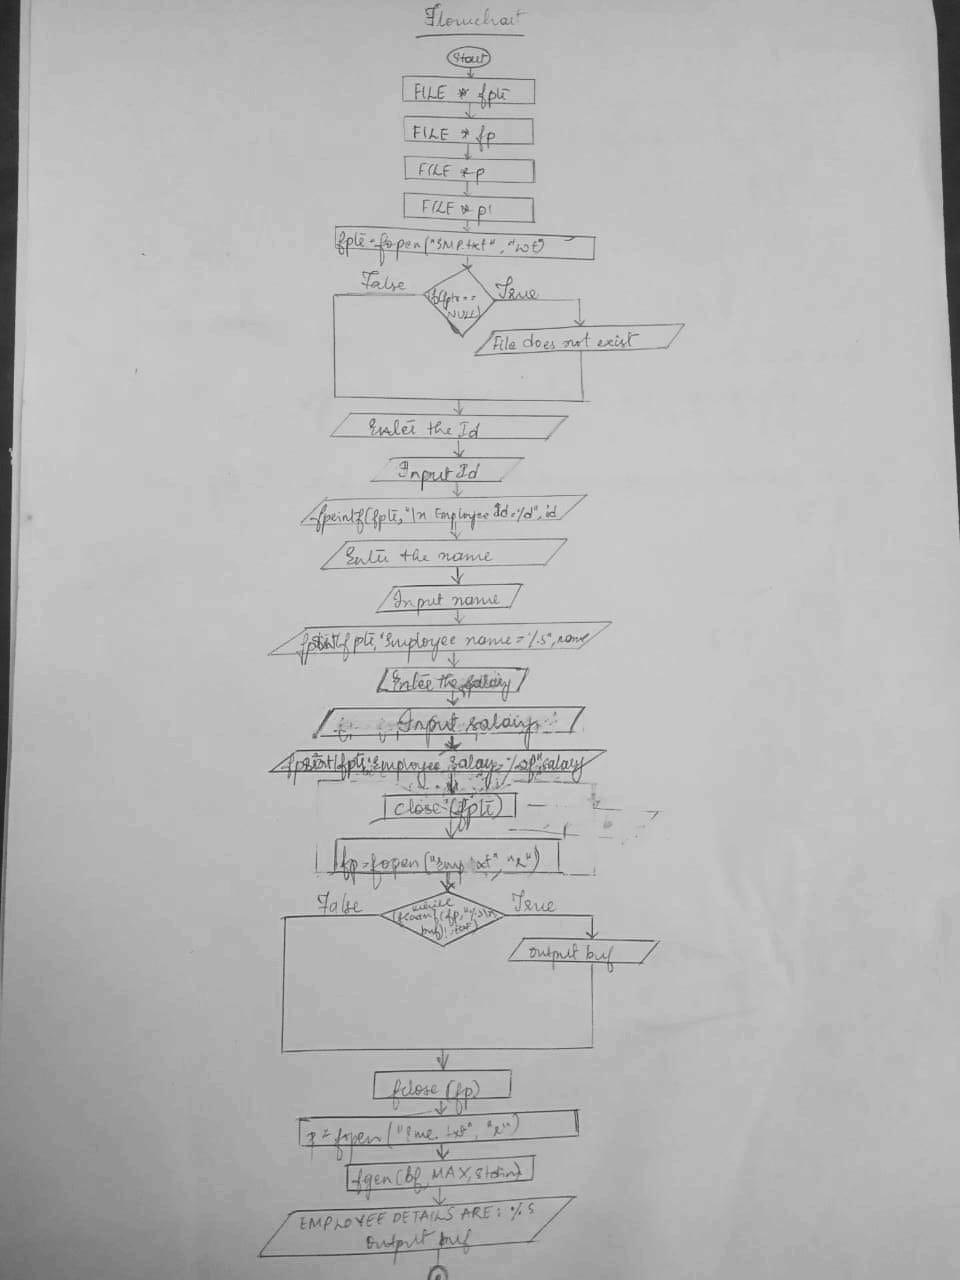 Flowchart
Start
FILE * fptr
FILE * fp
FILE * p
FILE * p1
fptr=fopen("EMP.txt", "wt")
False
if(fptr==
NULL)
True
File does not exist
Enter the Id
Input Id
fprintf(fptr,"\n Employee Id=%d",id
Enter the name
Input name
fprintf fptr,"Employee name=%s",name
Enter the salary
Input salary
fprintf(fptr"Employee salary=%.2f"salary
close (fptr)
fp=fopen("Emp.txt", "r")
False
while
(fscanf(fp,"%s\n
buf)!=
True
output buf
fclose (fp)
= fopen(" .txt", "r")
MAX, stdin)
EMPLOYEE DETAILS ARE: %S
output buf